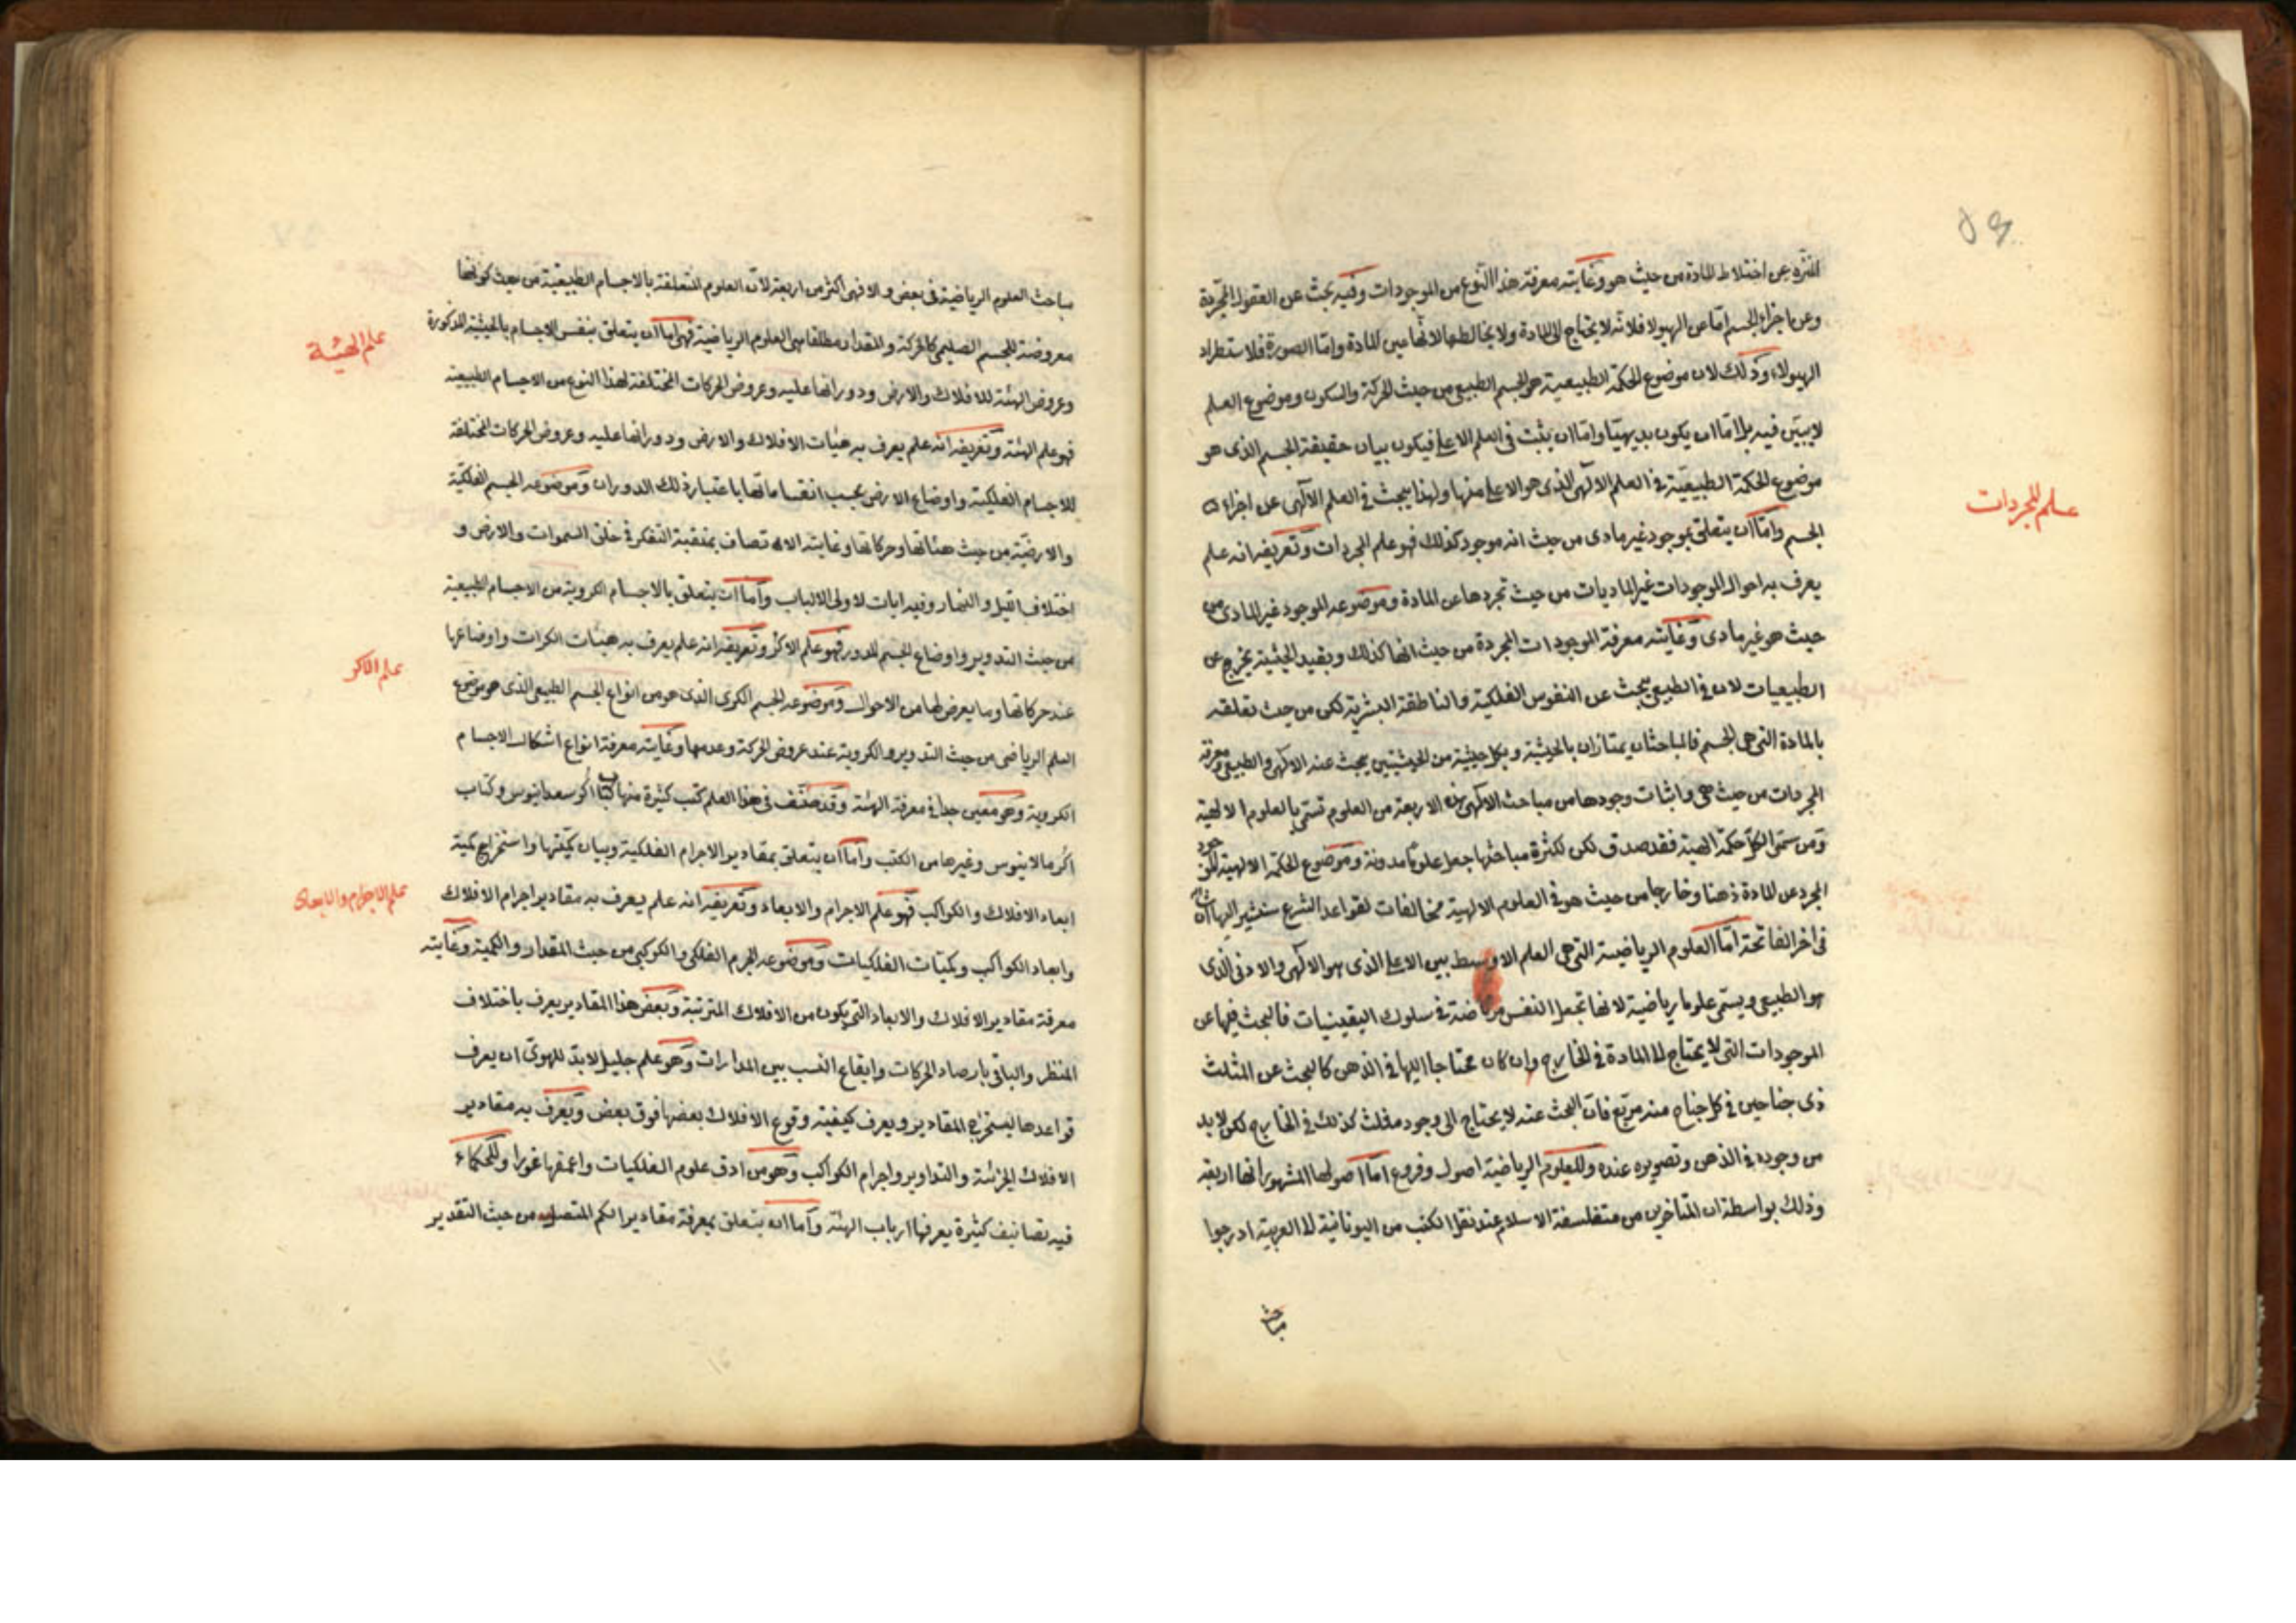 المنزه عن اختلاط المادة من حيث هو وغايته معرفة هذا النوع من الموجودات وفيه يبحث عن العقول المجردة
وعن اجزاء الجسم اما عن الهيولا فلانه لا يحتاج الى المادة ولا يخالطها لانها عين المادة واما الصورة فلاستطراد
الهيولاء وذلك لان موضوع الحكمة الطبيعية هو الجسم الطبيعى من حيث الحركة والسكون وموضوع العلم
لا يبين فيه بل اما ان يكون بديهيا واما ان يثبت فى العلم الاعلى فيكون بيان حقيقة الجسم الذى هو
موضوع الحكمة الطبيعية فى العلم الالهى الذى هو الاعلى منها ولهذا يبحث فى العلم الالهى عن اجزاء
علم المجردات
الجسم واما ان يتعلق بموجود غير مادى من حيث انه موجود كذلك فهو علم المجردات وتعريفه انه علم
يعرف به احوال الموجودات غير الماديات من حيث تجردها عن المادة وموضوعه الموجود غير المادى من
حيث هو غير مادى وغايته معرفة الموجودات المجردة من حيث انها كذلك وبقيد الحيثية يخرج عن
الطبيعيات لان فى الطبيعى يبحث عن النفوس الفلكية والناطقة البشرية لكن من حيث تعلقه
بالمادة التى هى الجسم فالمباحثان يمتازان بالحيثية وبكل حيثية من الحيثيتين يبحث عنه الالهى والطبيعى ومعرفة
المجردات من حيث هى واثبات وجودها من مباحث الالهى هذه الاربعة من العلوم تسمى بالعلوم الالهية
ومن سمى الكل حكمة الهية فقد صدق لكن لكثرة مباحثها جعل علوما مدونة وموضوع الحكمة الالهية الموجود
المجرد عن المادة ذهنا وخارجا من حيث هو وفى العلوم الالهية مخالفات لقواعد الشرع سنشير اليها ان شاء الله
فى اخر الفاتحة اما العلوم الرياضية التى هى العلم الاوسط بين الاعلى الذى هو الالهى والادنى الذى
هو الطبيعى ويسمى علوما رياضية لانها تجعل النفس مرتاضة فى سلوك اليقينيات فالبحث فيها عن
الموجودات التى لا يحتاج الى المادة فى الخارج وان كان محتاجا اليها فى الذهن كالبحث عن المثلث
ذى جناحين فى كل جناح منه مربع فان البحث عنه لا يحتاج الى وجود مثلث كذلك فى الخارج لكن لا بد
من وجوده فى الذهن وتصويره عنده وللعلوم الرياضية اصول وفروع اما اصولها المشهور انها اربعة
وذلك بواسطة ان المتاخرين من متفلسفة الاسلام عند نقل الكتب من اليونانية الى العربية ادرجوا
مباحث
مباحث العلوم الرياضية فى بعض والا فهى اكثر من اربعة لان العلوم المتعلقة بالاجسام الطبيعية من حيث كونها
معروضة للجسم التعليمى كالحركة والمقدار مطلقا هى العلوم الرياضية فهى اما ان يتعلق بنفس الاجسام بالحيثية المذكورة
علم الهيئة
وعروض الهيئة للافلاك والارض ودورانها عليه وعروض الحركات المختلفة لهذا النوع من الاجسام الطبيعية
فهو علم الهيئة وتعريفه انه علم يعرف به هيئات الافلاك والارض ودورانها عليه وعروض الحركات المختلفة
للاجسام الفلكية واوضاع الارض بحسب انقساماتها باعتبار ذلك الدوران وموضوعه الجسم الفلكية
والارضية من حيث هيئاتها وحركاتها وغايته الاتصاف بمنقبة التفكر فى خلق السموات والارض و
اختلاف الليل والنهار وفيه ايات لاولى الالباب واما ان يتعلق بالاجسام الكروية من الاجسام الطبيعية
من حيث التدوير واوضاع الجسم المدور فهو علم الاكر وتعريفه انه علم يعرف به هيئات الكرات واوضاعها
علم الاكر
عند حركاتها وما يعرض لها من الاحوال وموضوعه الجسم الكرى الذى هو من انواع الجسم الطبيعى الذى هو موضوع
العلم الرياضى من حيث التدوير والكروية عند عروض الحركة وعدمها وغايته معرفة انواع اشكال الاجسام
الكروية وهو معين جدا فى معرفة الهيئة وقد صنف فى هذا العلم كتب كثيرة منها كتاب اكر سعدانيوس وكتاب
اكر مالانيوس وغيرها من الكتب واما ان يتعلق بمقادير الاجرام الفلكية وبيان كيفتها واستخراج كمية
ابعاد الافلاك والكواكب فهو علم الاجرام والابعاد وتعريفه انه علم يعرف به مقادير اجرام الافلاك
علم الاجرام والابعاد
وابعاد الكواكب وكميات الفلكيات وموضوعه الجرم الفلكى والكوكبى من حيث المقدار والكمية وغايته
معرفة مقادير الافلاك والابعاد التى يكون من الافلاك المترتبة وبعض هذا المقادير يعرف باختلاف
المنظر والباقى بارصاد الحركات وايقاع النسب بين المدارات وهو علم جليل لابد للهيوى ان يعرف
قواعدها ليستخرج المقادير ويعرف كيفية وقوع الافلاك بعضها فوق بعض ويعرف به مقادير
الافلاك الجزئية والتداوير واجرام الكواكب وهو من ادق علوم الفلكيات واعمقها غورا وللحكماء
فيه تصانيف كثيرة يعرفها ارباب الهيئة واما ان يتعلق بمعرفة مقادير الكم المتصلة من حيث التقدير